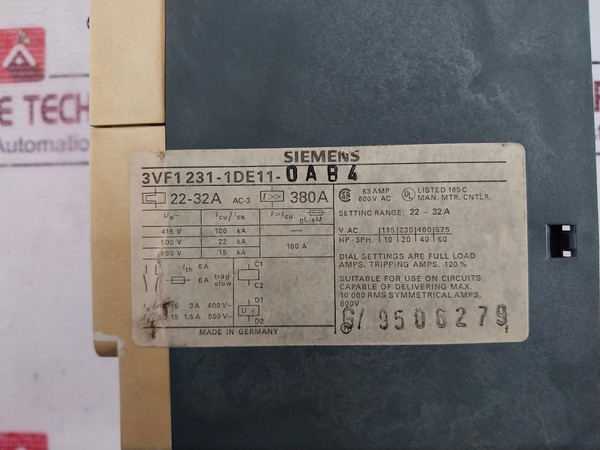 E TECH
Automation
SIEMENS
3VF1231-1DE11-0AB4
22-32A AC-3 I>> 380A
Ue~ Icu/Ics I>Icu gL/aM
415 V 100 kA
500 V 22 kA 160 A
660 V 15 kA
Ith 6A
6A träg slow
C1
C2
15 3A 400V~
15 1,5A 500V~
D1
U<
D2
MADE IN GERMANY
63 AMP
600 V AC
UL LISTED 165C
MAN. MTR. CNTLR.
SETTING RANGE: 22 - 32A
V AC 115 230 460 575
HP-3PH. 10 20 40 60
DIAL SETTINGS ARE FULL LOAD
AMPS, TRIPPING AMPS. 120 %
SUITABLE FOR USE ON CIRCUITS
CAPABLE OF DELIVERING MAX.
10 000 RMS SYMMETRICAL AMPS,
600V
G/ 9506279